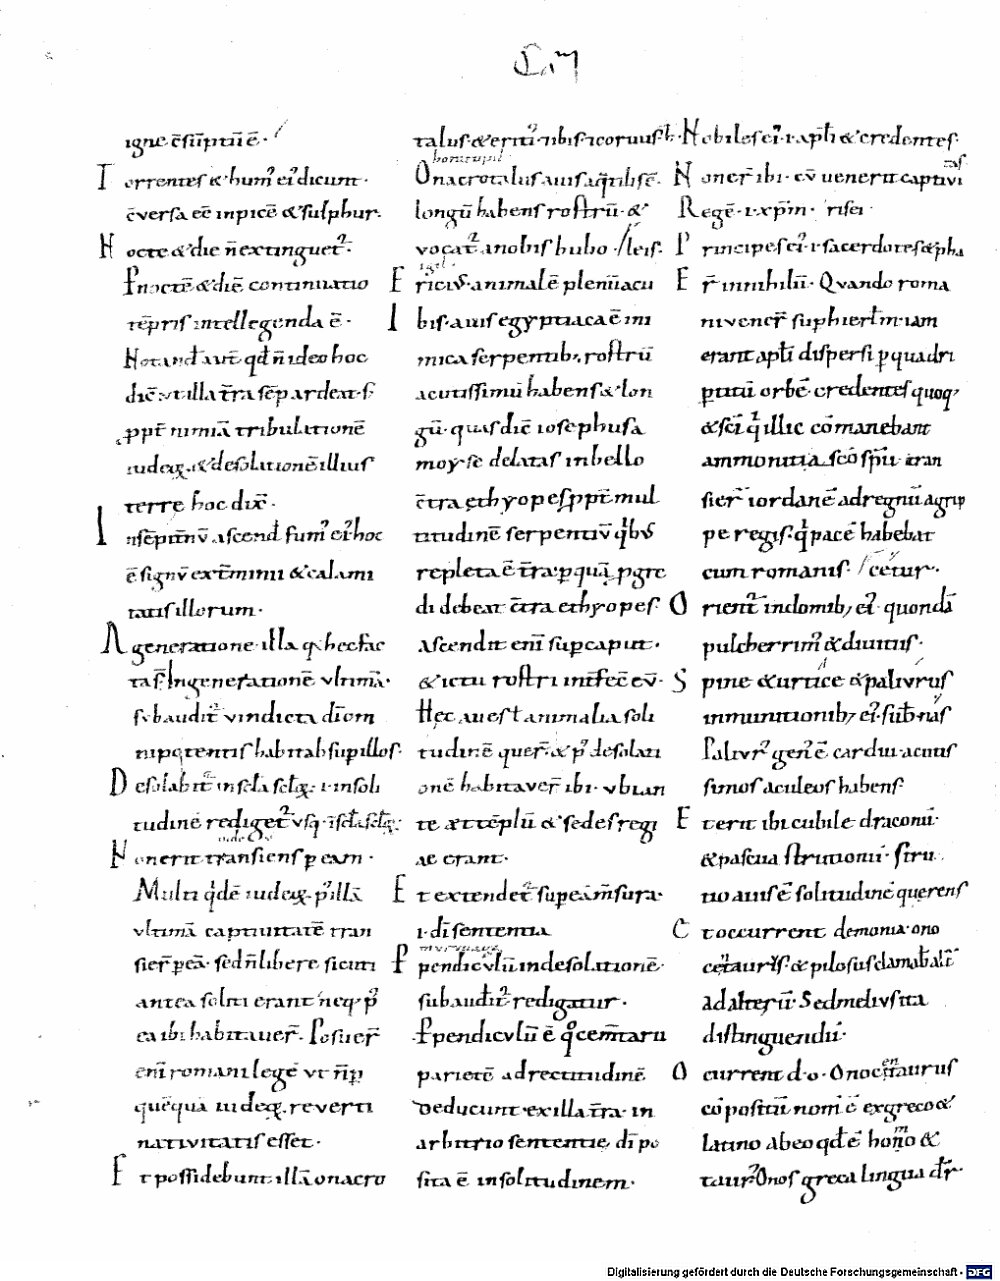 igne c̄sūptū ē·
Torrentes & hum᷒ ei᷒ dicunt·
c̄versa eē in picē & sulphur·
Nocte & die n̄ extinguet᷒·
P nocte & diē continuatio
tēpris intellegenda ē·
Notand̄ aut̄ qd̄ n̄ ideo hoc
dic̄ ut illa t̄ra sēp ardeat· s;
ppt̄ nimiā tribulationē
iudeoꝝ & desolationē illius
terre hoc dix̄·
In sēpitn̄ū ascend̄ fum᷒ ei᷒ hoc
ē signū ext̄minii & calami
tatis illorum·
A generatione illa q̨ hec fac
ta s̄ In generatione ultimā·
subaudit᷒ vindicta dī om
nipotentis habitab̄ sup illos·
Desolabit᷒ in sc̄la sc̄loꝝ· i· in soli
tudinē rediget᷒ usq· ī sc̄la sc̄loꝝ·
Non erit transiens p eam·
Multi qdē iudeoꝝ p᷒ illā
ultimā captivitatē tran
sier̄ p eā· sed n̄ libere sicuti
antea soliti erant neq· p᷒
ea ibi habitauer̄· Posuer̄
eni romani legē ut n̄p
quēquā iudeoꝝ reverti
nativitatis esset·
Et possidebunt illā onacro
talus· & eriti᷒· ibis· & corvus h̄·
Onacrotalus auis aq̄tilis ē·
longū habens rostrū· &
vocat᷒ a nobis hubo· leis·
Ericiꝰ· animal ē plenū acu
Ibis· auis egyptiaca ē ini
mica serpentib; rostrū
acutissimū habens & lon
gū· quas diē iosephus a
moyse delatas in bello
c̄tra ethyopes ppt̄ mul
titudinē serpentiū qbꝰ
repleta ē t̄ra· p quā pgre
di debeat c̄tra ethyopes·
Ascendit eni sup caput·
& ictu rostri int̄fec̄ eū·
Hec aues t̄ animalia soli
tudinē quer̄· & p᷒ desolati
onē habitaver̄ ibi· ubi an
te & tēplū & sedes regi
ae erant·
Et extendet᷒ sup eā m̄sura·
i· dī sententia
Ppendiculū in desolationē·
subaudit᷒ redigatur·
Ppendiculū ē qd̄ cem̄tarii
parietē ad rectitudinē
deducunt· ex illa t̄ra· in
arbitrio sententie dī po
sita ē in solitudinem·
Nobiles ei᷒· i· apl̄i & credentes·
Non er̄ ibi· eū uenerit captivi
Regē· i· xp̄m· risei·
Principes ei᷒· i· sacerdotes & pha
Er̄ in nihilū· Quando roma
ni vener̄ sup hierl̄m· iam
erant apl̄i dispersi p quadri
ptitū orbē· credentes quoq᷒
& sc̄i q illic cōmanebant
ammonitia sc̄o sp̄u tran
sier̄ iordanē ad regnū agrip
pe regis· q pacē habebat
cum romanis· cetur·
Orient᷒ in domib; ei᷒· quondā
pulcherrim᷒ & divitiis·
Spine & urtice & paliurus
in munitionib; ei᷒· sub̄ nas
Paliur᷒ gen᷒ ē cardui acutis
simos aculeos habens
Et erit ibi cubile draconū·
& pascua strutionū· stru
tio auis ē solitudinē querens
Et occurrent demonia· ono
cētauris· & pilosus clamab̄ alt̄
ad alterū· Sed melius ita
distinguendū·
Occurrent d· o· Onocentaurus
cōpositū nom̄ ē ex greco &
latino ab eo qd̄ ē homo &
taur᷒ Onos greca lingua dr̄·
Digitalisierung gefördert durch die Deutsche Forschungsgemeinschaft - DFG